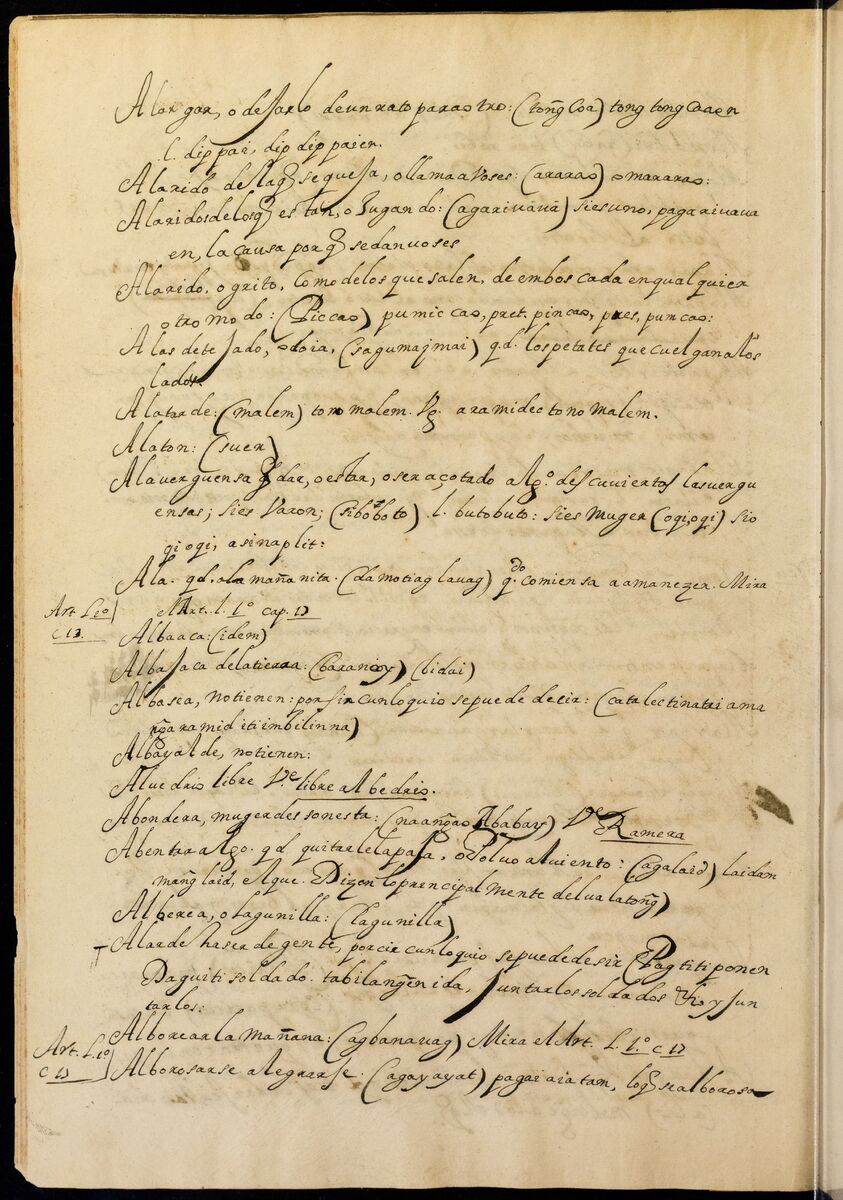 Alargar, o dejarlo de un rato para otro: (tong̃ Coa) tong tong Coaen
l. dip pai, dip dip paien.
Alarido de la q̃ se queja, o llama a voses: (ararao) omararao:
Alaridos de los q̃ estan, o Jugando: (agarivāvā) si es uno, pagarivava
en, la causa por q̃ se dan voses
Alarido, o grito, Como de los que salen, de emboscada en qualquier
otro modo: (Piccao) pumiccao, pret. pincao, pres, pumcao:
Alas de tejado, (sagumajmai) qd. los petates que cuelgan a los
lados.
Ala tarde: (malem) tono malem. Vg. aramidec tono malem.
Alaton: (suer)
Ala verguensa q̃ dar, o estar, o ser açotado Algo. descuviertos las vergu
ensas; si es Varon; (siboboto) .l. butobuto: si es Muger (oqi,oqi) sio
qi oqi, asinaplit:
Ala. qd. a la mañanita. (damotiag lavag) q.do comiensa a amanezer. Mira
Art. L. 1o
el Art. l. 1.o cap. 13
c 13.
Albaaca: (idem)
Albajaca de la tierra: (barancoy) (bidai)
Albasea, no tienen: por sircunloquio se puede decir: (catalectinatai ama
ng̃aramid iti imbilinna)
Albayalde, no tienen:
Aluedrio libre V.e libre albedrio.
Abondera, muger desonesta: (naang̃ao Ababay) V.e Ramera
Abentar algo. qd. quitarle la paja, o Polvo al viento: (agalaid) laidam
mang̃ laid, el que. Dizen lo prencipalmente del valatong̃)
Alberca, o lagunilla: (lagunilla)
+ Alarde haser de gente, por circunloquio se puede desir (Pagtitiponen
Daguiti soldado. tabilang̃en ida, juntar los soldados y jun
tarlos:
Alborear la mañana: (agbanavag) Mira el Art. l. 1.o c 13
Art. L. 1o
c 13
Alborosarse alegrarse. (agayayat) pagaiaiatam, lo q̃ se alborosa